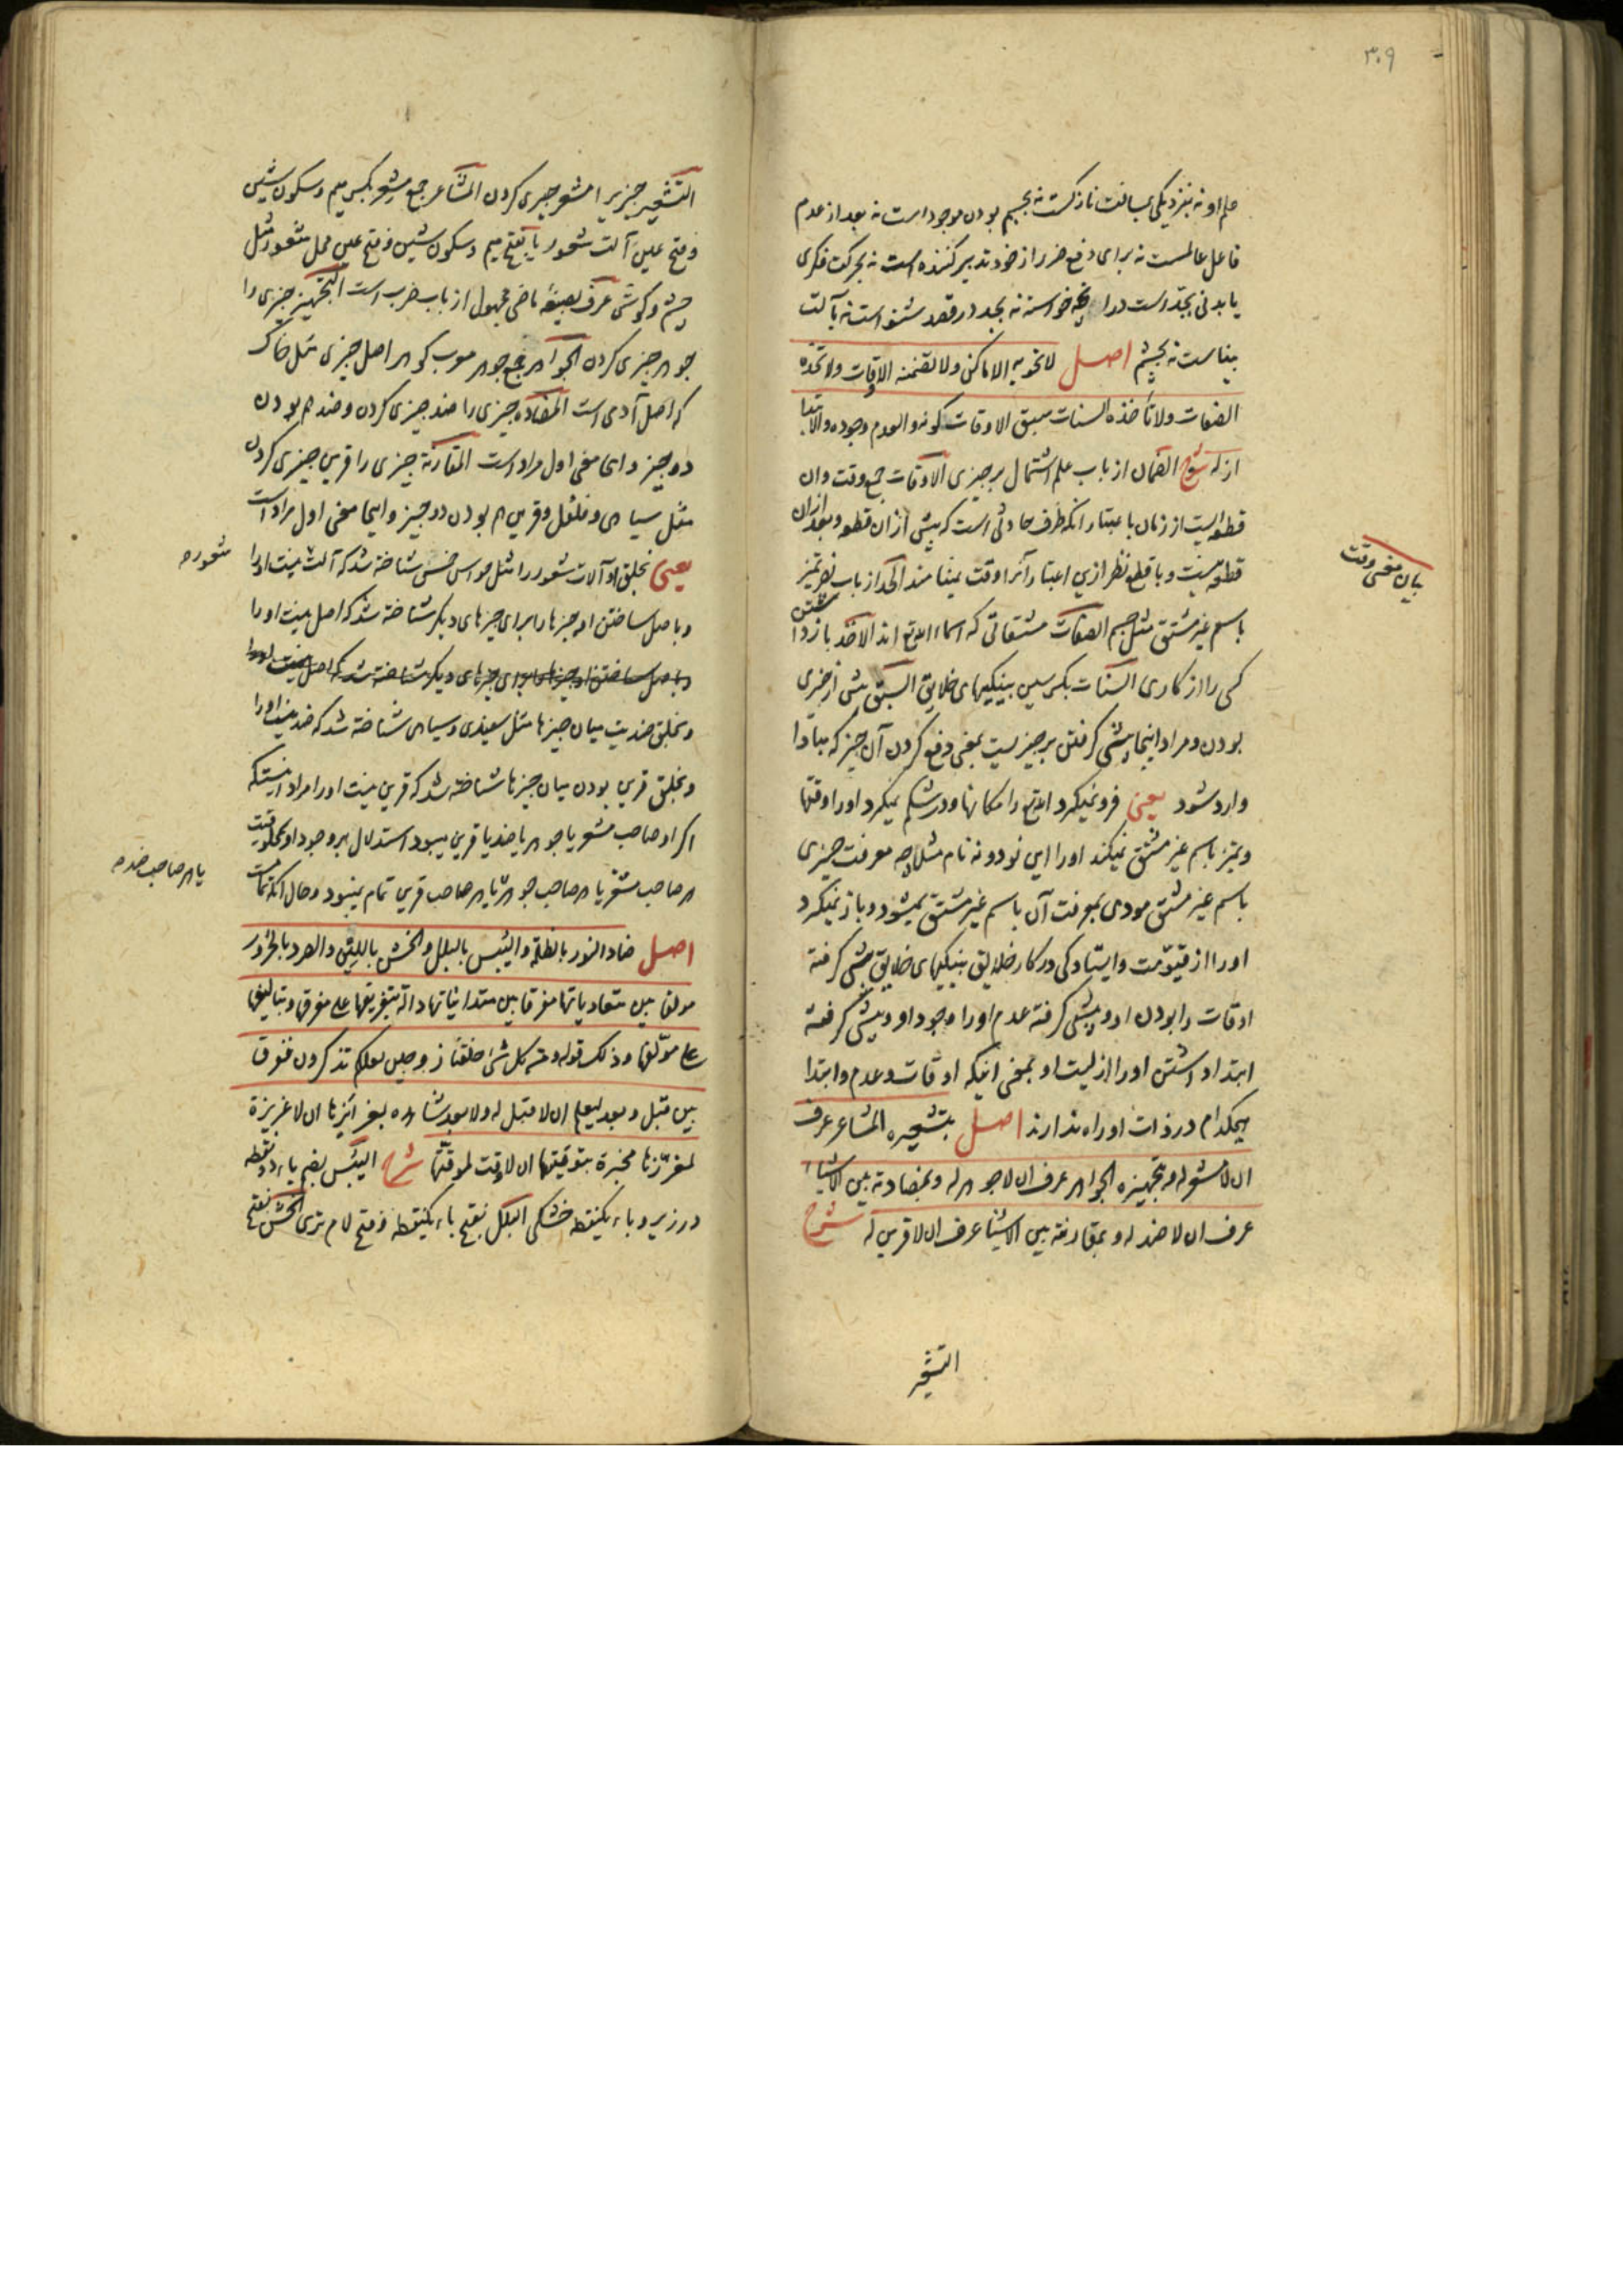 ۳۰۹
علم او نه بنزدیکی بمسافت نازکست نه بجسم بودن موجود است نه بعد از عدم
فاعل عالمست نه برای دفع ضرر از خود تدبیر کننده است نه بحرکت فکری
یا بدنی بجدّ است در آنچه خواسته نه بجد در قصد شنواست نه بآلت
بیناست نه بچشم اصل لا تحویه الاماکن ولا تضمنه الاوقات ولا تحدّه
الصفات ولا تأخذه السنات سبق الاوقات کونه والعدم وجوده والابتدا
ازله شرح الضمان از باب علم اشتمال بر چیزی الاوقات جمع وقت وآن
قطعه ایست از زمان باعتبار آنکه ظرف حادثی است که پیش از آن قطعه وبعد از آن
قطعه نیست وبا قطع نظر ازین اعتبار آنرا وقت نمینامند الحد از باب نصر تمیز
باسم غیر مشتق مثل جسم الصفات مشتقاتی که اسماء الله تع اند الاخذ بازداشتن
کسی را از کاری السنات بکسر سین پینکیهای خلایق السبق پیش از چیزی
بودن ومراد اینجا پیشی گرفتن بر چیزیست بمعنی دفع کردن آن چیز که مبادا
وارد شود یعنی فرو نمیگیرد الله تع را مکانها ودر شکم نمیگیرد او را وقتها
وتمیز باسم غیر مشتق نمیکند او را این نود و نه نام مثلا چه معرفت چیزی
باسم غیر مشتق مودی بمعرفت آن باسم غیر مشتق نمیشود وباز نمیگیرد
او را از قیّومیت وایستادگی در کار خلایق پینکیهای خلایق پیشی گرفته
اوقات را بودن او وپیشی گرفته عدم او را وجود او وپیشی گرفته
ابتدا داشتن او را ازلیت او بمعنی اینکه اوقات وعدم وابتدا
هیچکدام در ذات او راه ندارند اصل بتشعیره المشاعر عرف
ان لا مشعر له وبتجهیره الجواهر عرف ان لا جوهر له وبمضادته بین الاشیاء
عرف ان لا ضد له وبمقارنته بین الاشیا عرف ان لا قرین له شرح
التشعیر
بیان معنی وقت
التشعیر چیزیرا مشعر چیزی کردن المشاعر جمع مشعر بکسر میم وسکون شین
وفتح عین آلت شعور یا بفتح میم وسکون شین وفتح عین محل شعور مثل
چشم وگوش عرف بصیغهٔ ماضی مجهول از باب ضرب است التجهیر چیزی را
جوهر چیزی کردن الجواهر جمع جوهر معرب گوهر اصل چیزی مثل خاک
که اصل آدمی است المضاده چیزی را ضد چیزی کردن وضد هم بودن
دو چیز واینجا معنی اول مراد است المقارنة چیزی را قرین چیزی کردن
مثل سیاهی وفلفل وقرین هم بودن دو چیز واینجا معنی اول مراد است
یعنی بخلق او آلات شعور را مثل حواس خمس شناخته شد که آلت نیست او را
وباصل ساختن او چیزها را برای چیزهای دیگر شناخته شد که اصل نیست او را
وباصل ساختن او چیزها برای چیزهای دیگر شناخته شد که اصل نیست او را
وبخلق ضدیت میان چیزها مثل سفیدی وسیاهی شناخته شد که ضد نیست او را
وبخلق قرین بودن میان چیزها شناخته شد که قرین نیست او را مراد اینستکه
اگر او صاحب مشعر یا جوهر یا ضد یا قرین میبود استدلال بر وجود او بمخلوقیت
هر صاحب مشعر یا هر صاحب جوهر یا هر صاحب قرین تمام نمیبود وحال آنکه تمامست
اصل ضاد النور بالظلمة والیبس بالبلل والخشن باللین والصرد بالحرور
مولفا بین متعادیاتها مفرقا بین متدانیاتها دالة بتفریقها علی مفرقها وبتالیفها
علی مؤلفها وذلک قوله ومن کل شئ خلقنا زوجین لعلکم تذکرون ففرق
بین قبل وبعد لیعلم ان لا قبل له ولا بعد شاهدة بغرائزها ان لا غریزة
لمغرّزها مخبرة بتوقیتها ان لا وقت لموقتها شرح الیُبس بضم یاء دو نقطه
در زیر وباء یکنقطه خشکی البلل بفتح باء یکنقطه وفتح لام تری الخشن بفتح
شعوره
یا هر صاحب ضد